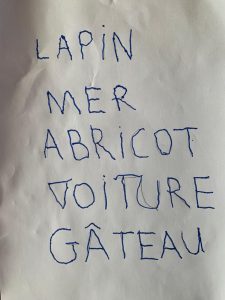 LAPiN
MER
ABRiCOT
VOiTURE
GÂTEAU